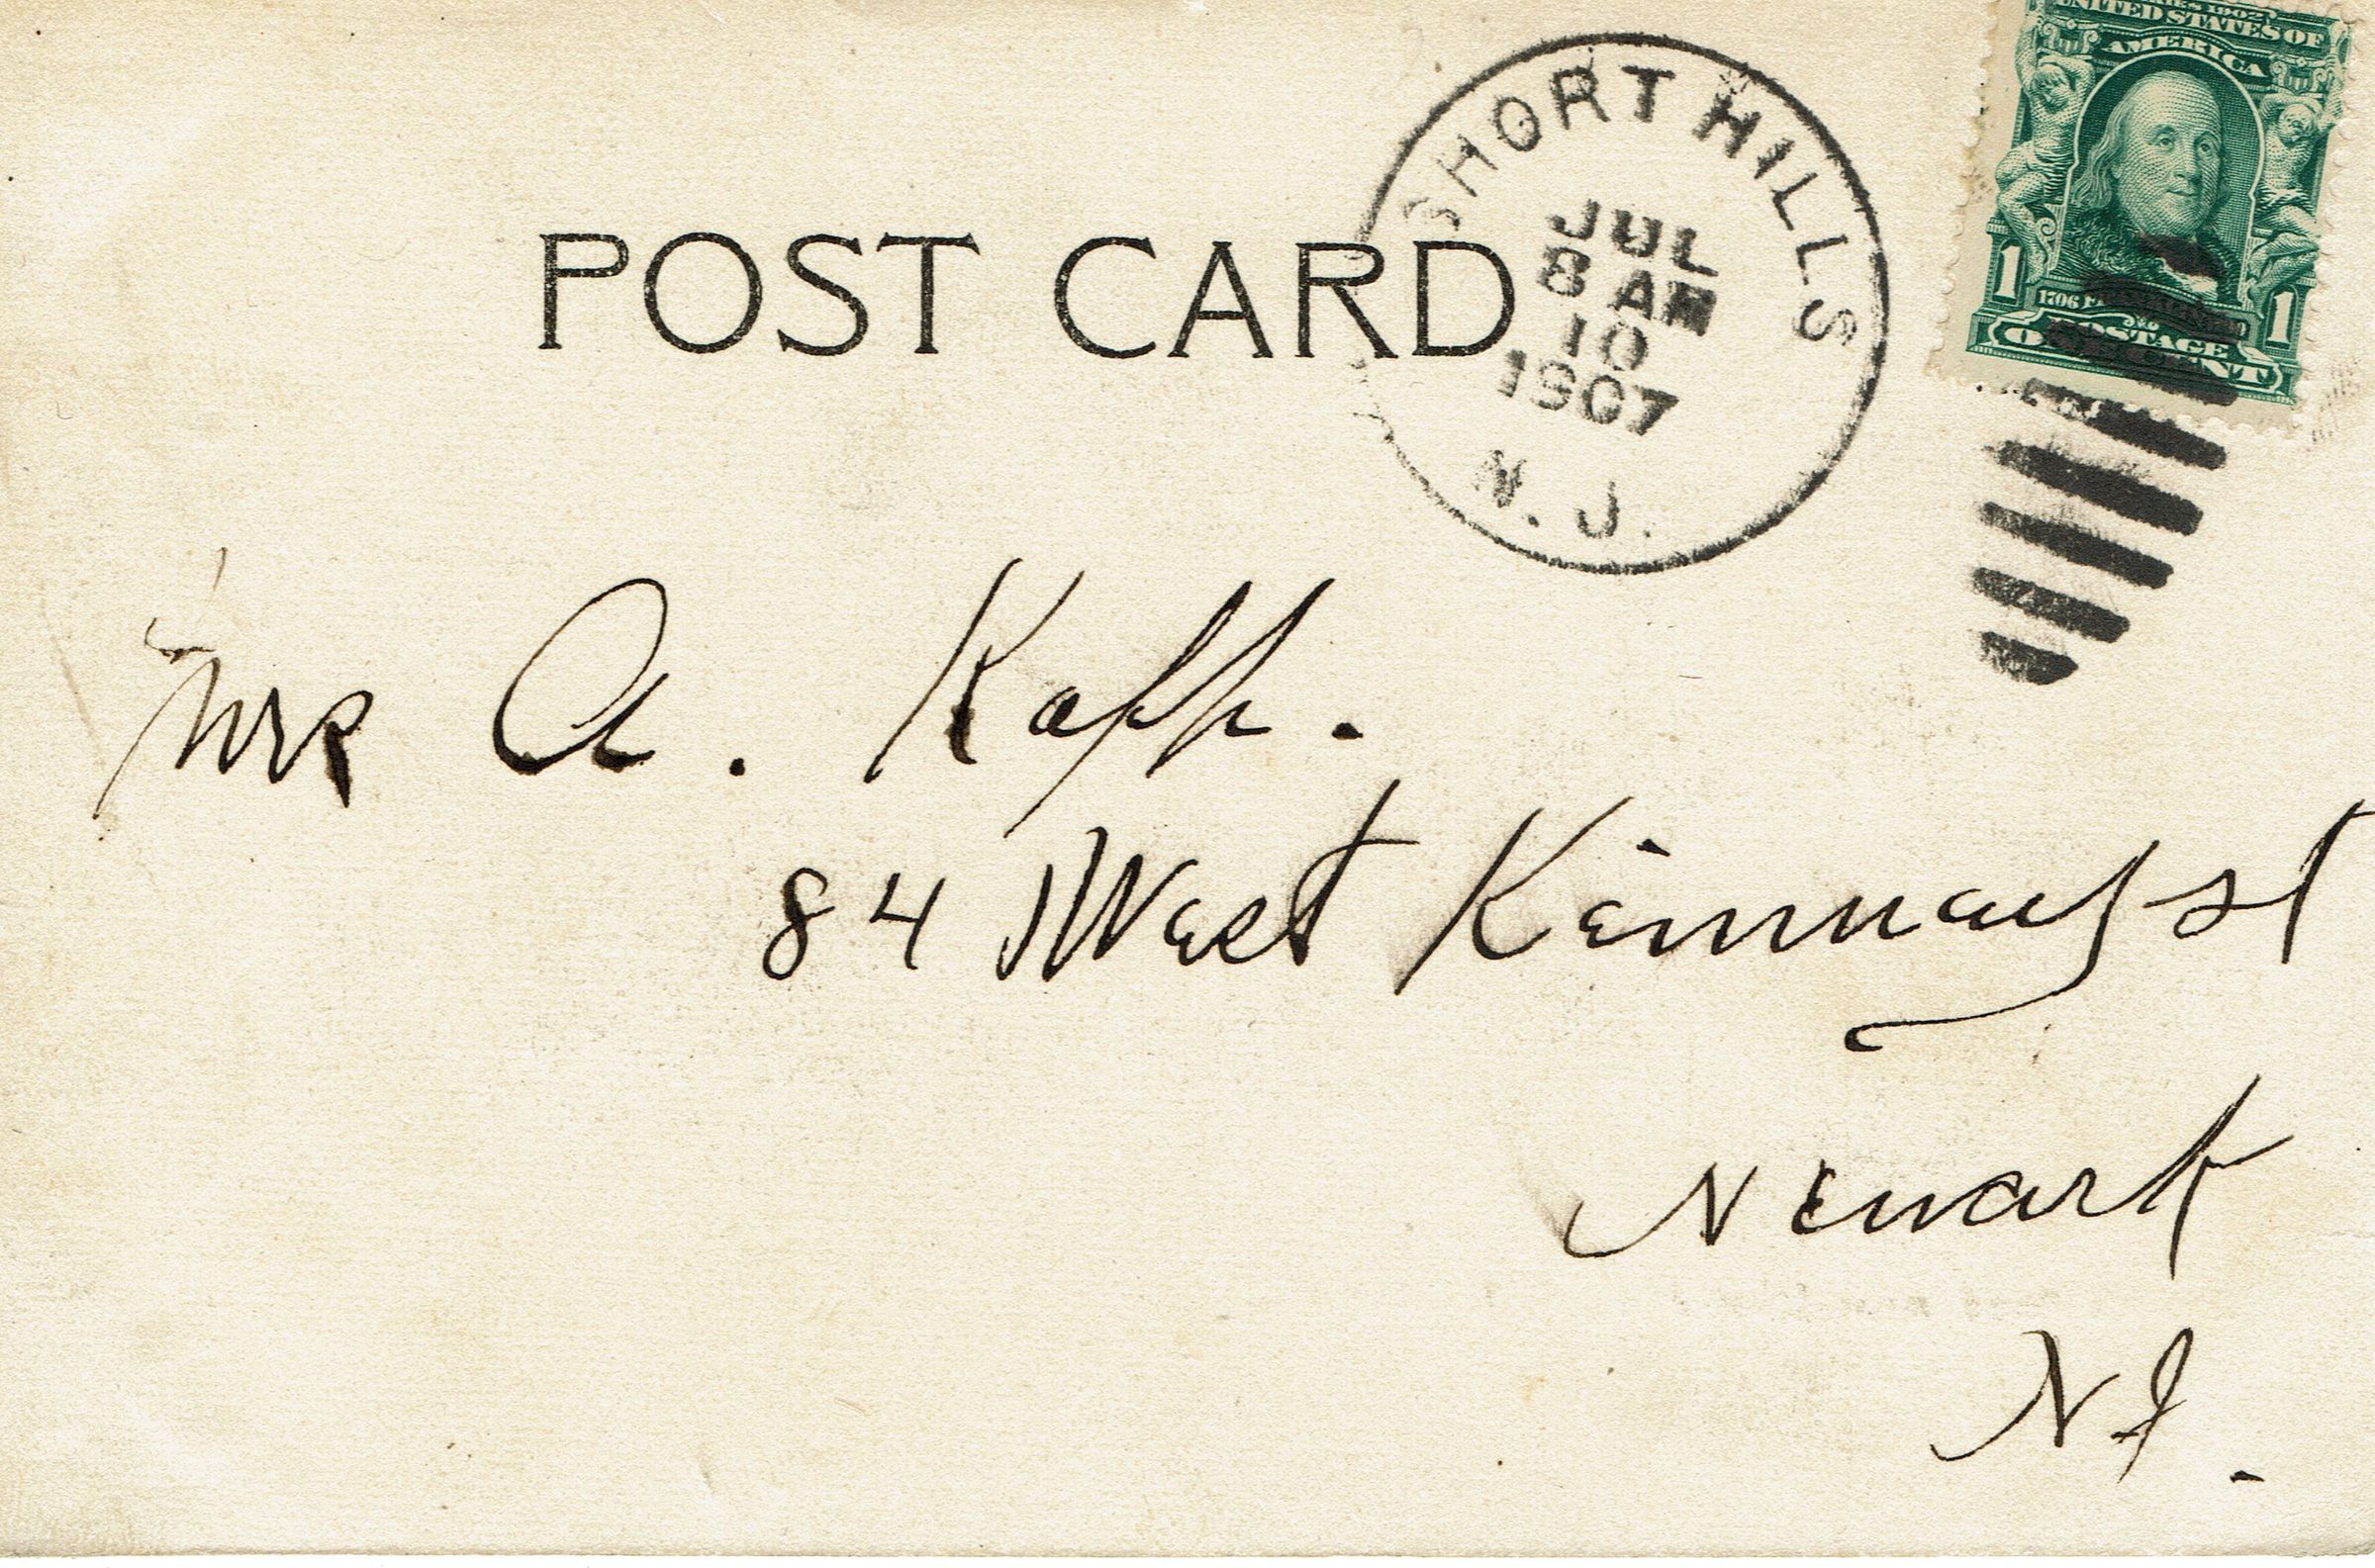 SERIES 1902
UNITED STATES OF
AMERICA
1 1
1706 FRANKLIN
POSTAGE
ONE CENT
SHORT HILLS
JUL
8 AM
10
1907
N. J.
POST CARD
Mrs A. Kapp.
84 West Kinney st
Newark
NJ.